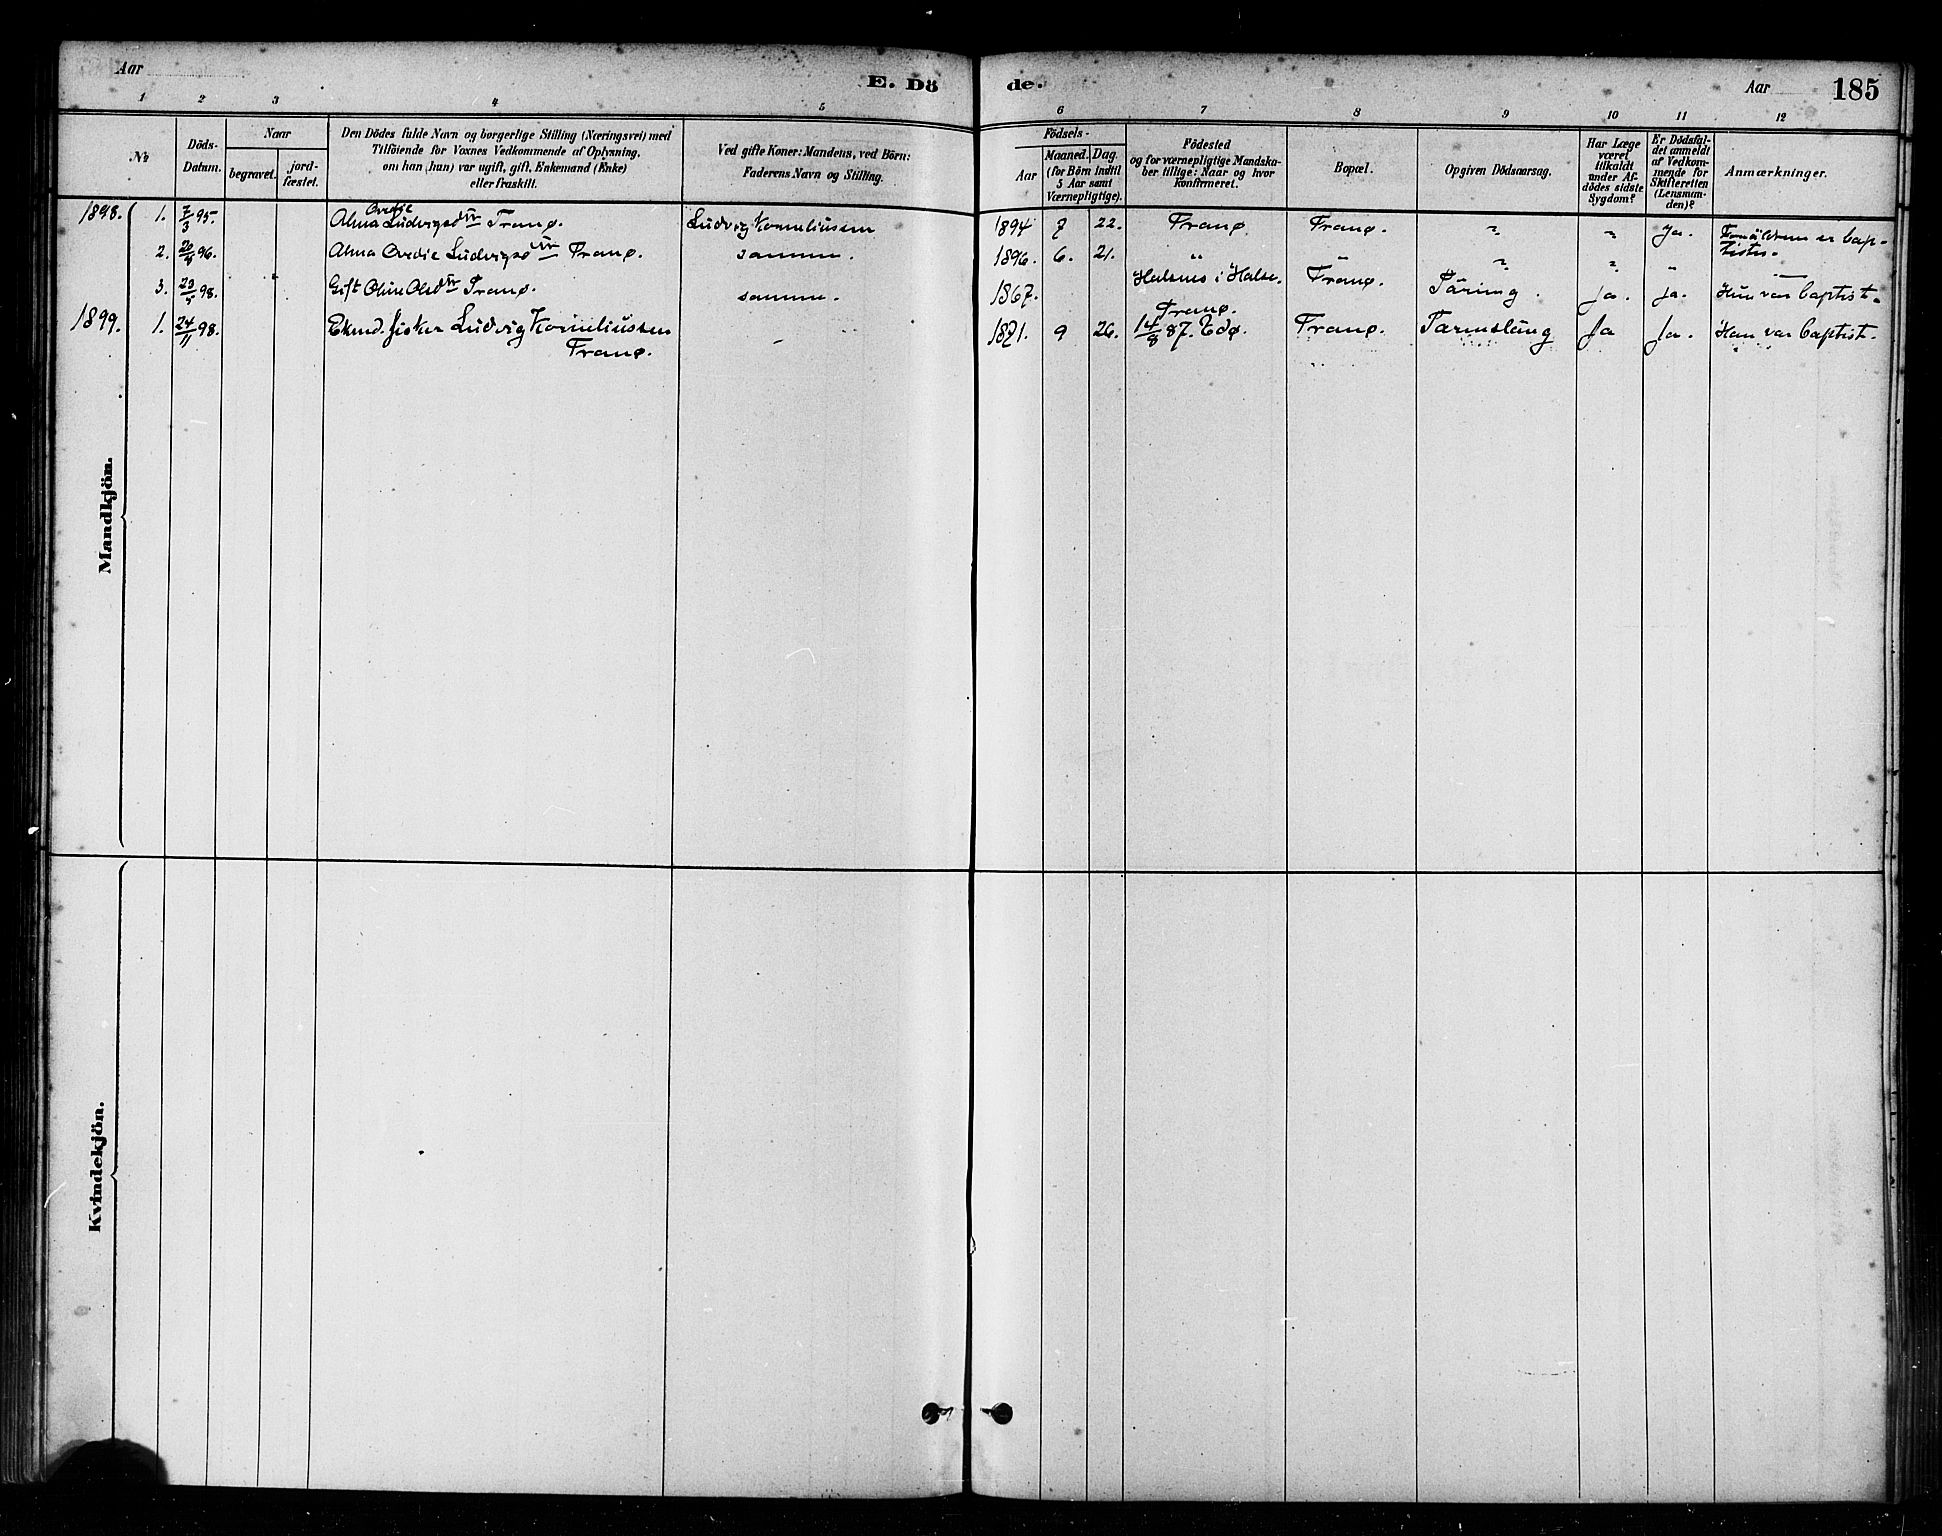 Aar
E. Dö
de.
Aar
185
1 2 3 4 5 6 7 8 9 10 11 12
No
Döds-
Datum.
Naar
begravet.
jord-
fæstet.
Den Dödes fulde Navn og borgerlige Stilling (Næringsvei) med
Tilföiende for Voxnes Vedkommende af Oplysning,
om han (hun) var ugift, gift, Enkemand (Enke)
eller fraskilt.
Ved gifte Koner: Mandens, ved Börn:
Faderens Navn og Stilling.
Födsels-
Aar
Maaned. Dag.
(for Börn indtil
5 Aar samt
Værnepligtige).
Födested
og for værnepligtige Mandska-
ber tillige: Naar og hvor
konfirmeret.
Bopæl.
Opgiven Dödsaarsag.
Har Læge
været
tilkaldt
under Af-
dödes sidste
Sygdom?
Er Dödsfal-
det anmeldt
af Vedkom-
mende for
Skifteretten
(Lensman-
den)?
Anmærkninger.
1898. 1. 7/3 95. Alma Ovedie Ludvigsdtr Tranø. Ludvig Korneliussen 1894 7 22. Tranø. Tranø. " " Ja. Forældrene er bap-
tister.
2. 96. Alma Ovedie Ludvigsdtr Tranø. samme. 1896. 6. 21. " " " " "
3. 98. Gift Oline Olsdtr Tranø. samme. 1867. Halsnes i Halse. Tranø. Täring. ja. ja. Hun var baptist.
1899. 1. 24/11 98. Ekmd. fisker Ludvig Korneliussen 1871. 9 26. Tranø. Tranø. Tarmslüng Ja Ja. Han var baptist.
Tranø. - 14/8 87. Edø.
Mandkjön.
Kvindekjön.